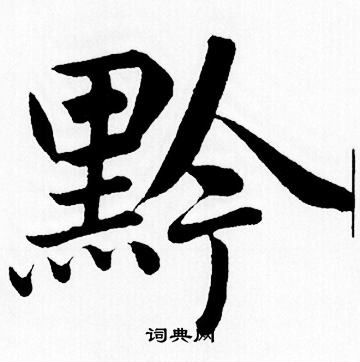 黔
词典网